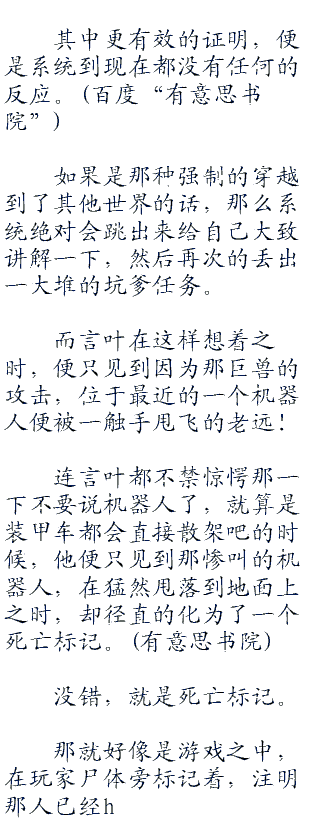 其中更有效的证明，便
是系统到现在都没有任何的
反应。（百度“有意思书
院”）
如果是那种强制的穿越
到了其他世界的话，那么系
统绝对会跳出来给自己大致
讲解一下，然后再次的丢出
一大堆的坑爹任务。
而言叶在这样想着之
时，便只见到因为那巨兽的
攻击，位于最近的一个机器
人便被一触手甩飞的老远！
连言叶都不禁惊愕那一
下不要说机器人了，就算是
装甲车都会直接散架吧的时
候，他便只见到那惨叫的机
器人，在猛然甩落到地面上
之时，却径直的化为了一个
死亡标记。（有意思书院）
没错，就是死亡标记。
那就好像是游戏之中，
在玩家尸体旁标记着，注明
那人已经h